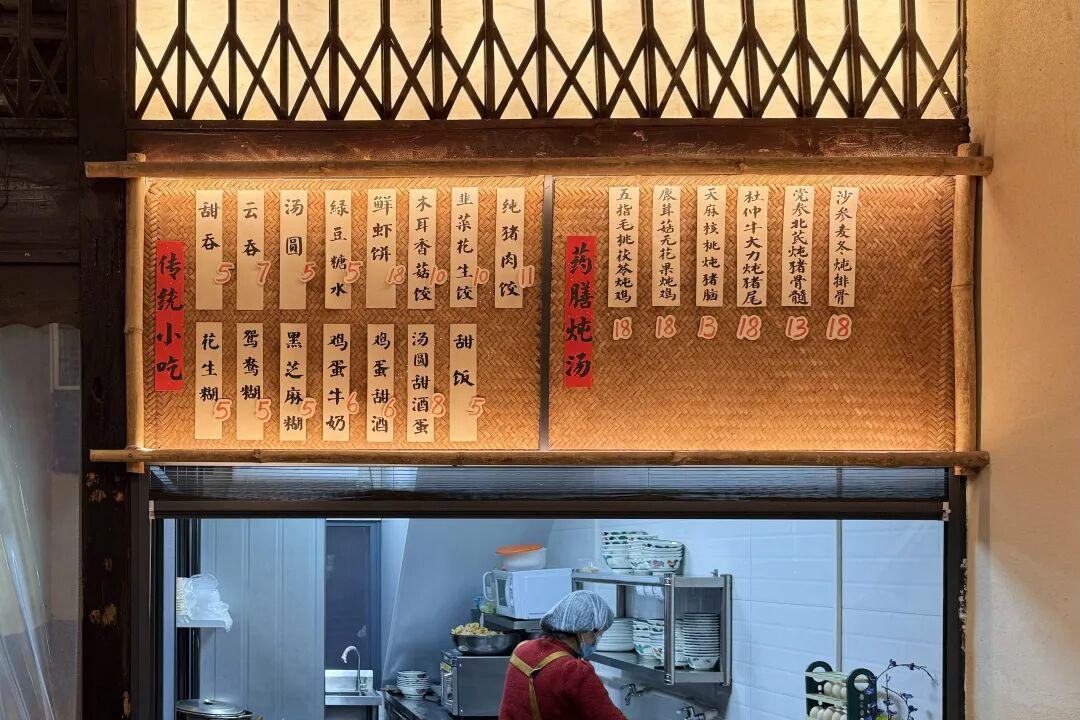 传统小吃
甜吞 5
云吞 7
汤圆 5
綠豆糖水 5
鲜虾饼 18
木耳香菇饺 10
韭菜花生饺 10
纯猪肉饺 11
花生糊 5
鸳鸯糊 5
黑芝麻糊 5
鸡蛋牛奶 6
鸡蛋甜酒 6
汤圆甜酒蛋 8
甜饭 5
药膳炖汤
五指毛桃茯苓炖鸡 18
鹿茸菇无花果炖鸡 18
天麻核桃炖猪脑 13
杜仲牛大力炖猪尾 18
党参北芪炖猪骨髓 13
沙参麦冬炖排骨 18